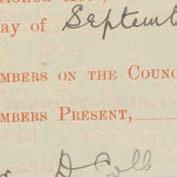 ay of Septemb
MBERS ON THE COUNC
MBERS PRESENT,
D